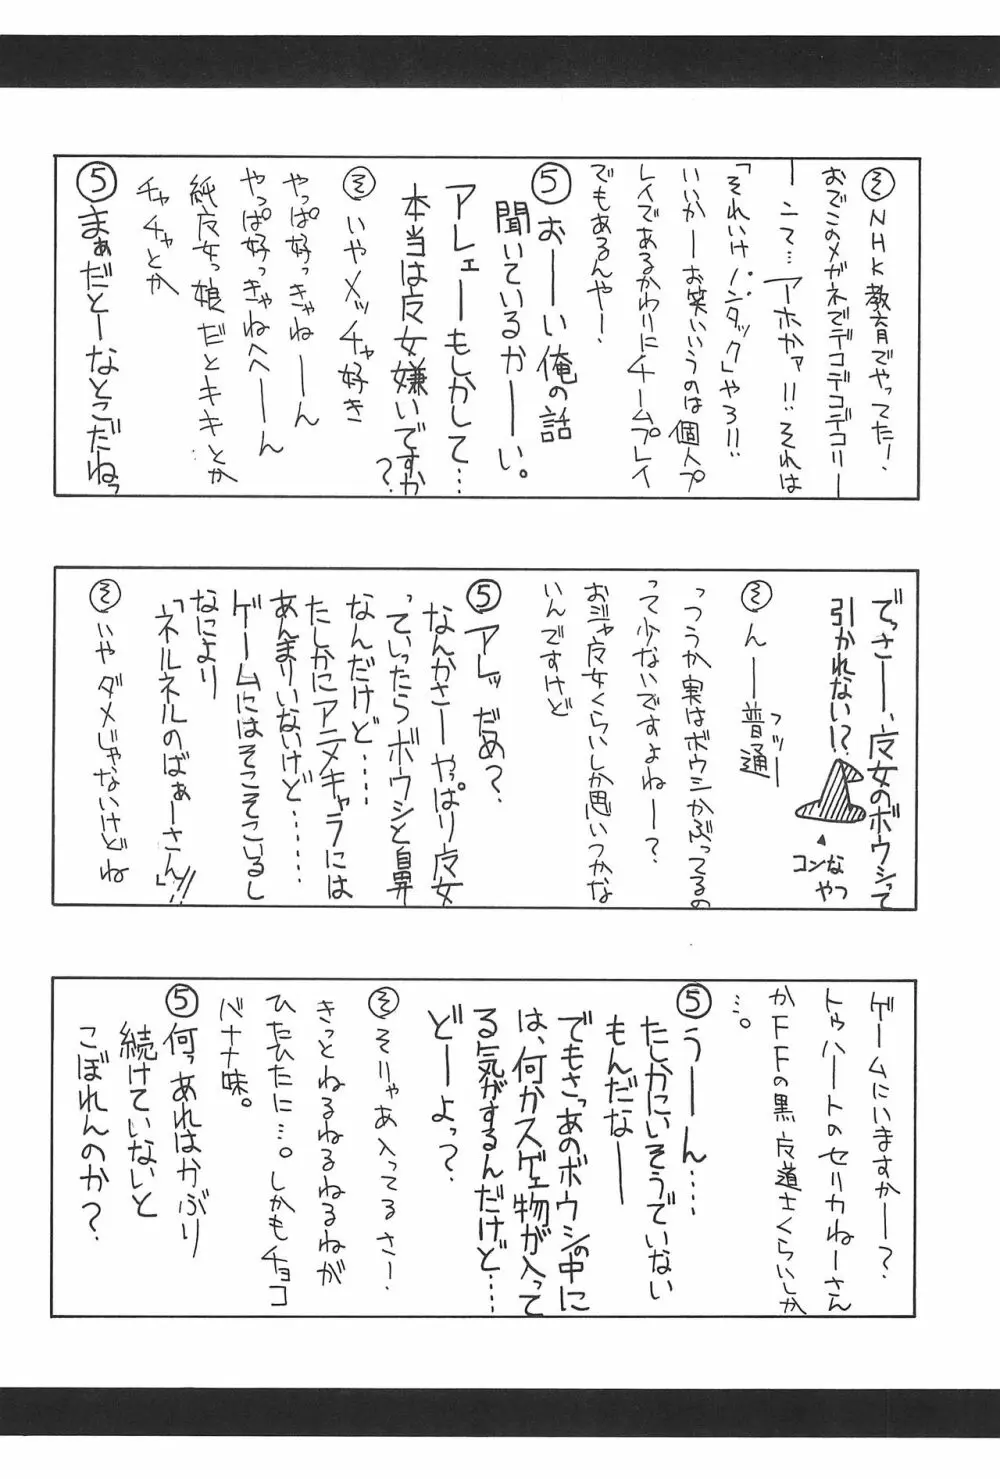 ㋞NHK教育でやってたー!
おでこのメガネでデコデコデコリー
ーニて…アホかァ!!それは
「それいけノンタック」やろ!!
いいかーお笑いいうのは個人プ
レイであるかわりにチームプレイ
でもあるんやー!
⑤おーーい俺の話
聞いているかーーい。
アレェーーもしかして…
本当は女嫌いですか?
㋞いやメッチャ好き
やっぱ好っきゃねーーん
やっぱ好っきゃねへーーん
純女っ娘だとキキとか
チャチャとか
⑤まぁだとーなとこだねっ
でっさーー、女のボウシって
引かれない!?
コンな
やつ
㋞んーー普通
フツー
っつうか実はボウシかぶってるの
って少ないですよねー?
おジャ女くらいしか思いつかな
いんですけど
⑤アレッだめ?
なんかさーやっぱり女
っていったらボウシと鼻
なんだけど……
たしかにアニメキャラには
あんまりいないけど……
ゲームにはそこそこいるし
なにより
「ネルネルのばぁーさん」!!
㋞いやダメじゃないけどね
ゲームにいますかーー?
トゥハートのセリカねーさん
かFFの黒道士くらいしか
…。
⑤うーーん……
たしかにいそうでいない
もんだなーー
でもさっあのボウシの中に
は、何かスゲェ物が入って
る気がするんだけど……
どーよっ?
㋞そりゃあ入ってるさー!
きっとねるねるねるねが
ひたひたに…。しかもチョコ
バナナ味。
⑤何っあれはかぶり
続けていないと
こぼれんのか?